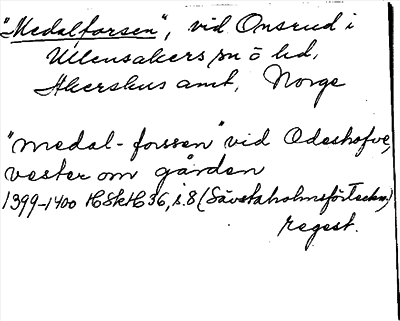 "Medalforsen", vid Onsrud i
Ullensakers sn o hd,
Akershus amt, Norge
"medal-forssen" vid Odeshofve,
vester om gården
1399-1400 HSkH 36, s. 8 (Sävstaholmsförteckn.)
regest.